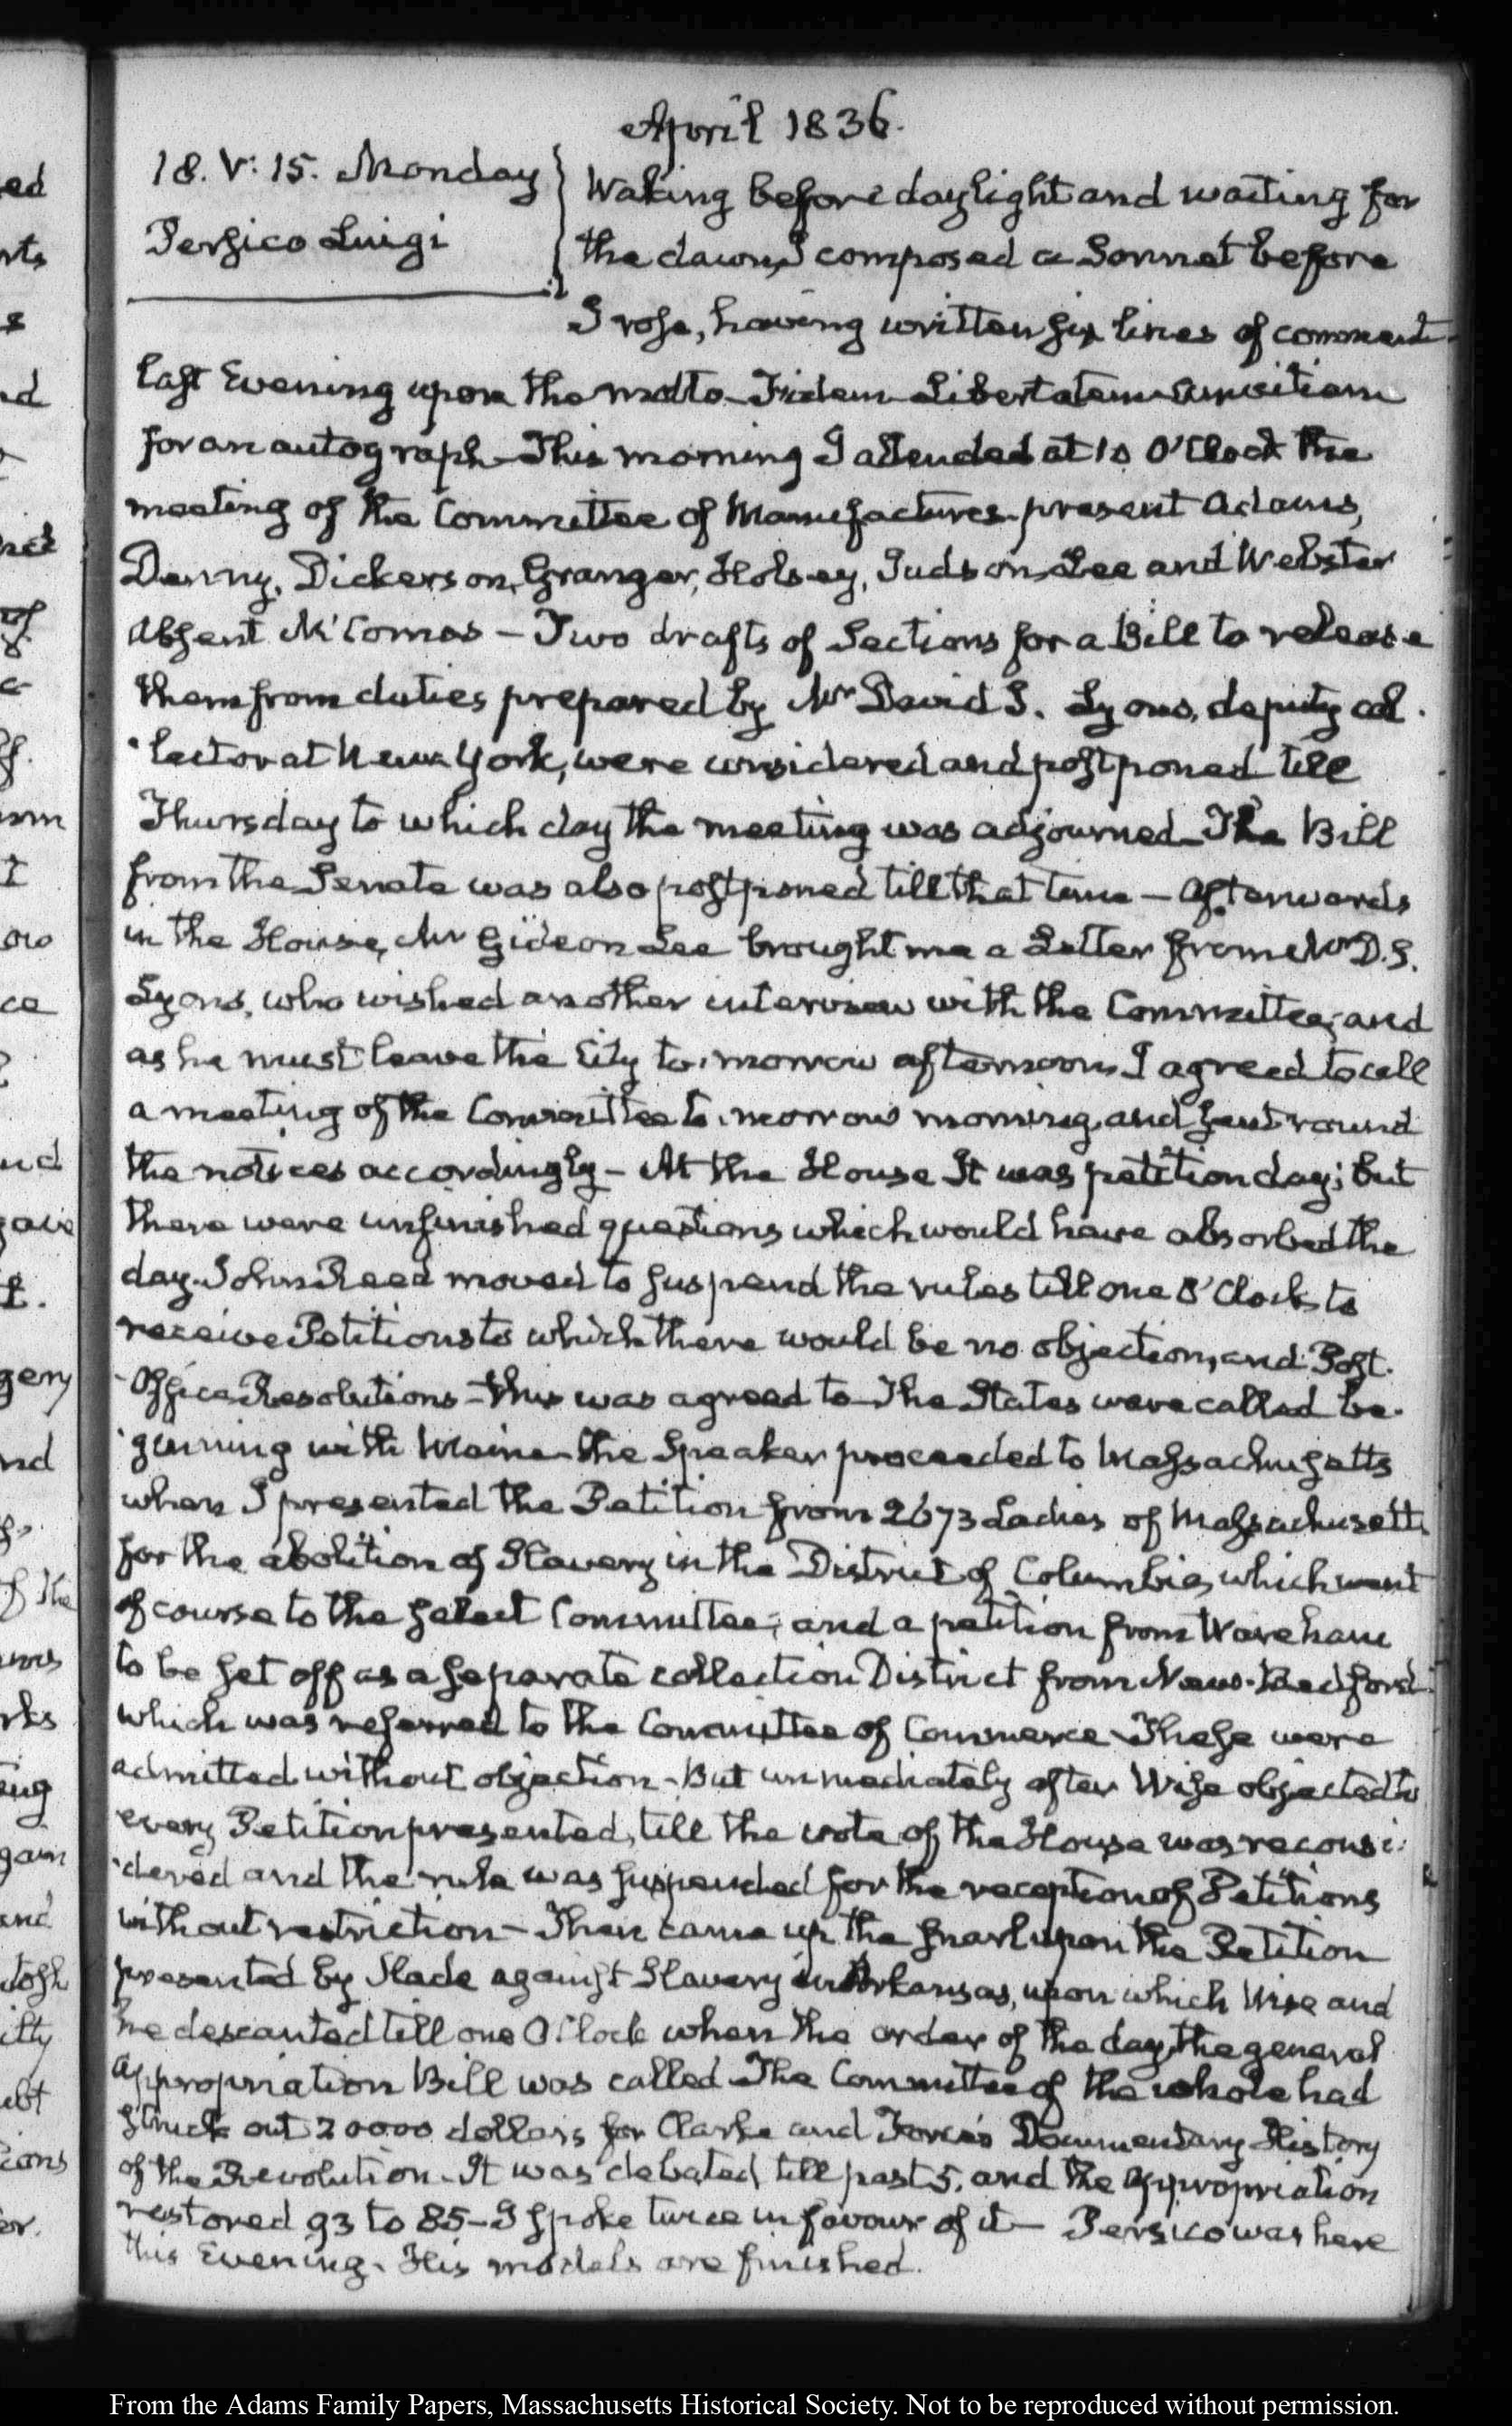 April 1836.
18. V: 15. Monday
Persico Luigi
Waking before daylight and waiting for
the dawn, I composed a Sonnet before
I rose, having written six lines of comment
last Evening upon the motto Fidem Libertatem Amicitiam
for an autograph This morning I attended at 10 O'Clock the
meeting of the Committee of Manufactures. present Adams,
Denny, Dickerson, Granger, Holsey, Judson, Lee and Webster
absent McComas — Two drafts of Sections for a Bill to release
them from duties prepared by Mr David S. Lyons, deputy col-
lector at New York, were considered and postponed till
Thursday to which day the meeting was adjourned The Bill
from the Senate was also postponed till that time — Afterwards
in the House, Mr Gideon Lee brought me a Letter from Mr D. S.
Lyons, who wished another interview with the Committee; and
as he must leave the City to-morrow afternoon, I agreed to call
a meeting of the Committee to-morrow morning, and sent round
the notices accordingly — At the House It was petition day; but
there were unfinished questions which would have absorbed the
day. John Reed moved to suspend the rules till one O'Clock, to
receive Petitions to which there would be no objection, and Post-
Office Resolutions — this was agreed to The States were called be-
ginning with Maine the Speaker proceeded to Massachusetts
when I presented the Petition from 2673 Ladies of Massachusetts
for the abolition of Slavery in the District of Columbia, which went
of course to the select Committee; and a petition from Wareham
to be set off as a separate collection District from New-Bedford
which was referred to the Committee of Commerce These were
admitted without objection — But immediately after Wise objected to
every Petition presented, till the vote of the House was reconsi-
dered and the rule was suspended for the reception of Petitions
without restriction — Then came up the snarl upon the Petition
presented by Slade against Slavery in Arkansas, upon which Wise and
he descanted till one O'Clock when the order of the day, the general
appropriation Bill was called The Committee of the whole had
struck out 20000 dollars for Clarke and Force's Documentary History
of the Revolution. It was debated till past 5. and the appropriation
restored 93 to 85 — I spoke twice in favour of it — Persico was here
this Evening. His models are finished.
From the Adams Family Papers, Massachusetts Historical Society. Not to be reproduced without permission.